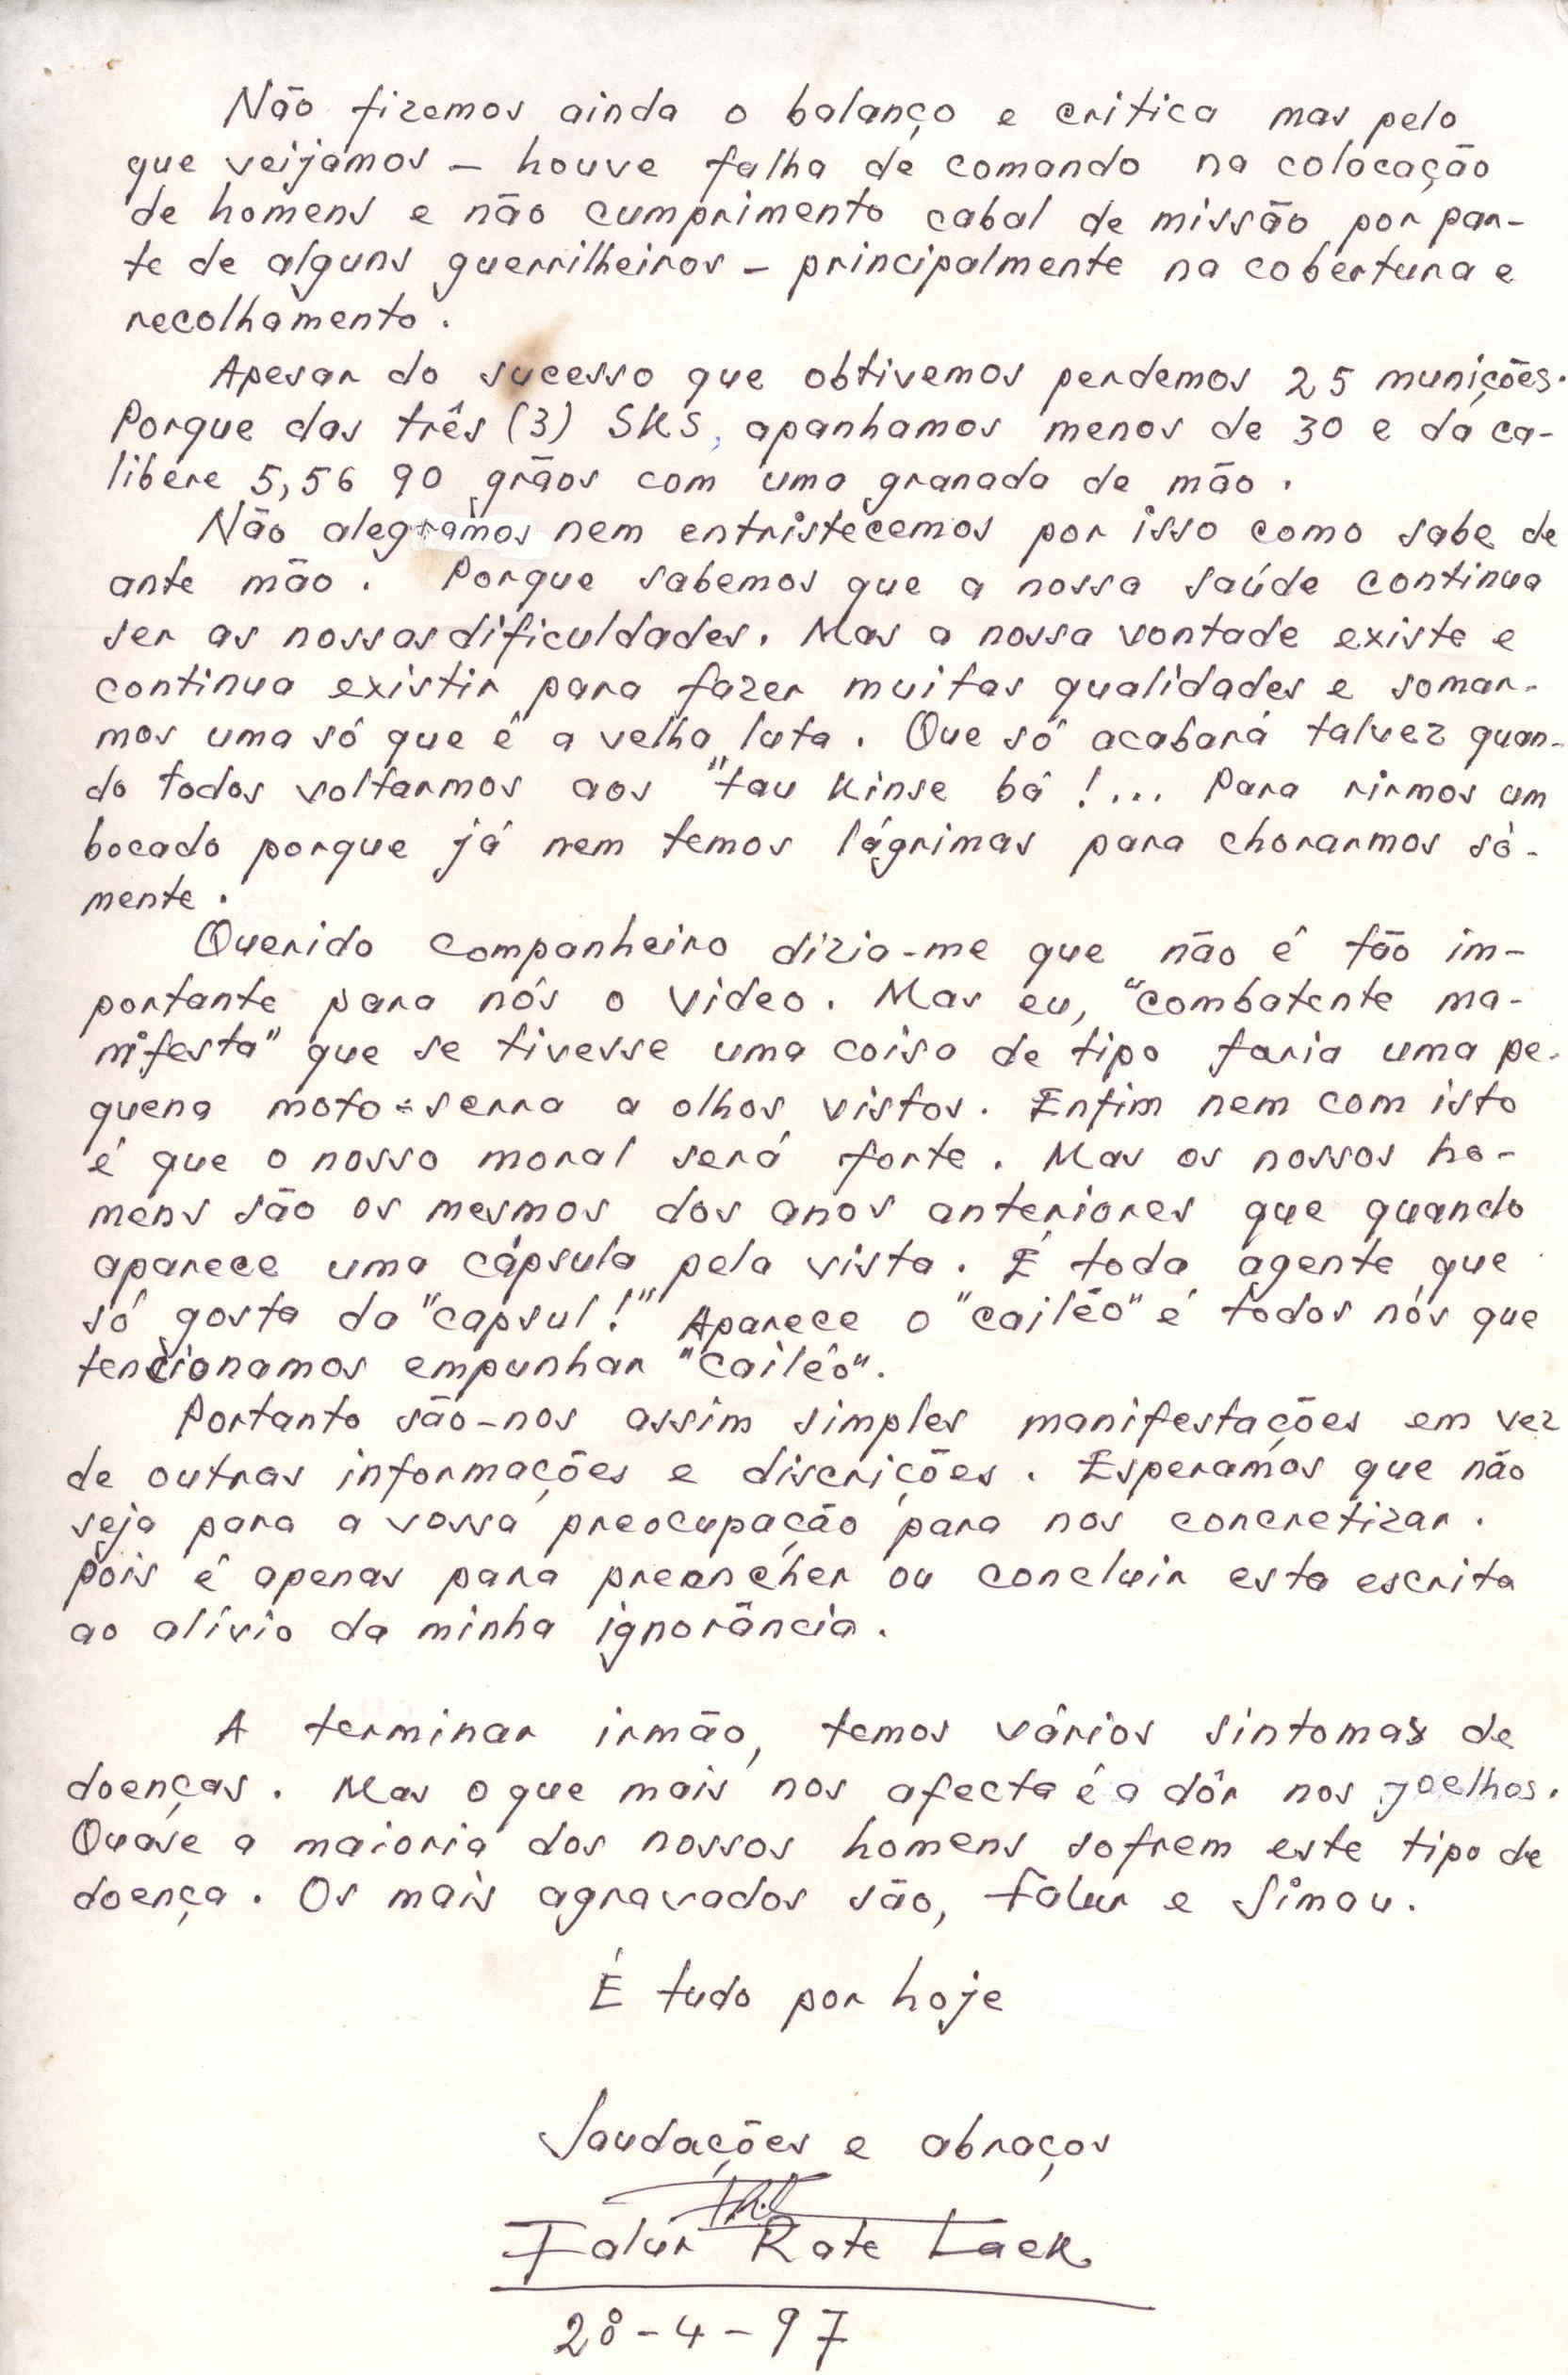 Não fizemos ainda o balanço e critica mas pelo
que veijamos - houve falha de comando na colocação
de homens e não cumprimento cabal de missão por par-
te de alguns guerrilheiros - principalmente na cobertura e
recolhamento.
Apesar do sucesso que obtivemos perdemos 25 munições.
Porque das três (3) SKS, apanhamos menos de 30 e da ca-
libere 5,56 90 grãos com uma granada de mão.
Não alegramos nem entristecemos por isso como sabe de
ante mão. Porque sabemos que a nossa saúde continua
ser as nossas dificuldades. Mas a nossa vontade existe e
continua existir para fazer muitas qualidades e somar-
mos uma só que é a velha luta. Que só acabará talvez quan-
do todos voltarmos aos "tau kinse bá!... Para rirmos um
bocado porque já nem temos lágrimas para chorarmos sò-
mente.
Querido companheiro dizia-me que não é tão im-
portante para nós o video. Mas eu, "combatente ma-
nifesta" que se tivesse uma coisa de tipo faria uma pe-
quena moto-serra a olhos vistos. Enfim nem com isto
é que o nosso moral será forte. Mas os nossos ho-
mens são os mesmos dos anos anteriores que quando
aparece uma cápsula pela vista. É toda agente que
só gosta da "capsul!" Aparece o "cailéo" é todos nós que
tencionamos empunhar "cailéo".
Portanto são-nos assim simples manifestações em vez
de outras informações e discrições. Esperamos que não
seja para a vossa preocupação para nos concretizar.
Pois é apenas para preencher ou concluir esta escrita
ao alívio da minha ignorância.
A terminar irmão, temos vários sintomas de
doenças. Mas o que mais nos afecta é a dôr nos joelhos.
Quase a maioria dos nossos homens sofrem este tipo de
doença. Os mais agravados são, Falur e Simau.
É tudo por hoje
Saudações e abraços
Falur Rate Laek
28-4-97